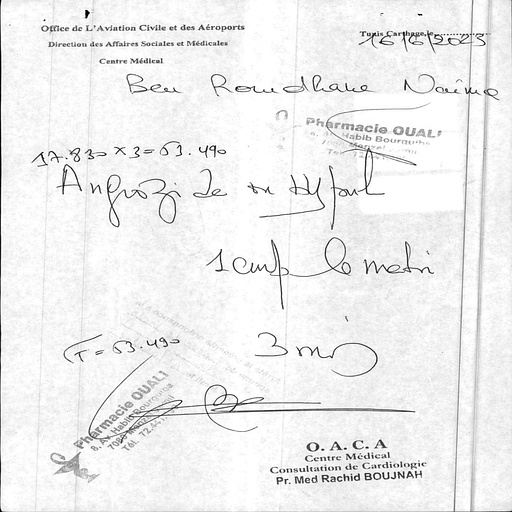 Office de L'Aviation Civile et des Aéroports
Direction des Affaires Sociales et Médicales
Centre Médical
Tunis Carthage,le 16/6/2023
Ben Romdhane Naima
Pharmacie OUALI
Habib Bourguiba
17.830 x 3 = 53.490
1 comp le matin
T = 53.490
3 mois
Pharmacie OUALI
8, Av. Habib Bourguiba
Tél. 72.
O. A. C. A
Centre Médical
Consultation de Cardiologie
Pr. Med Rachid BOUJNAH